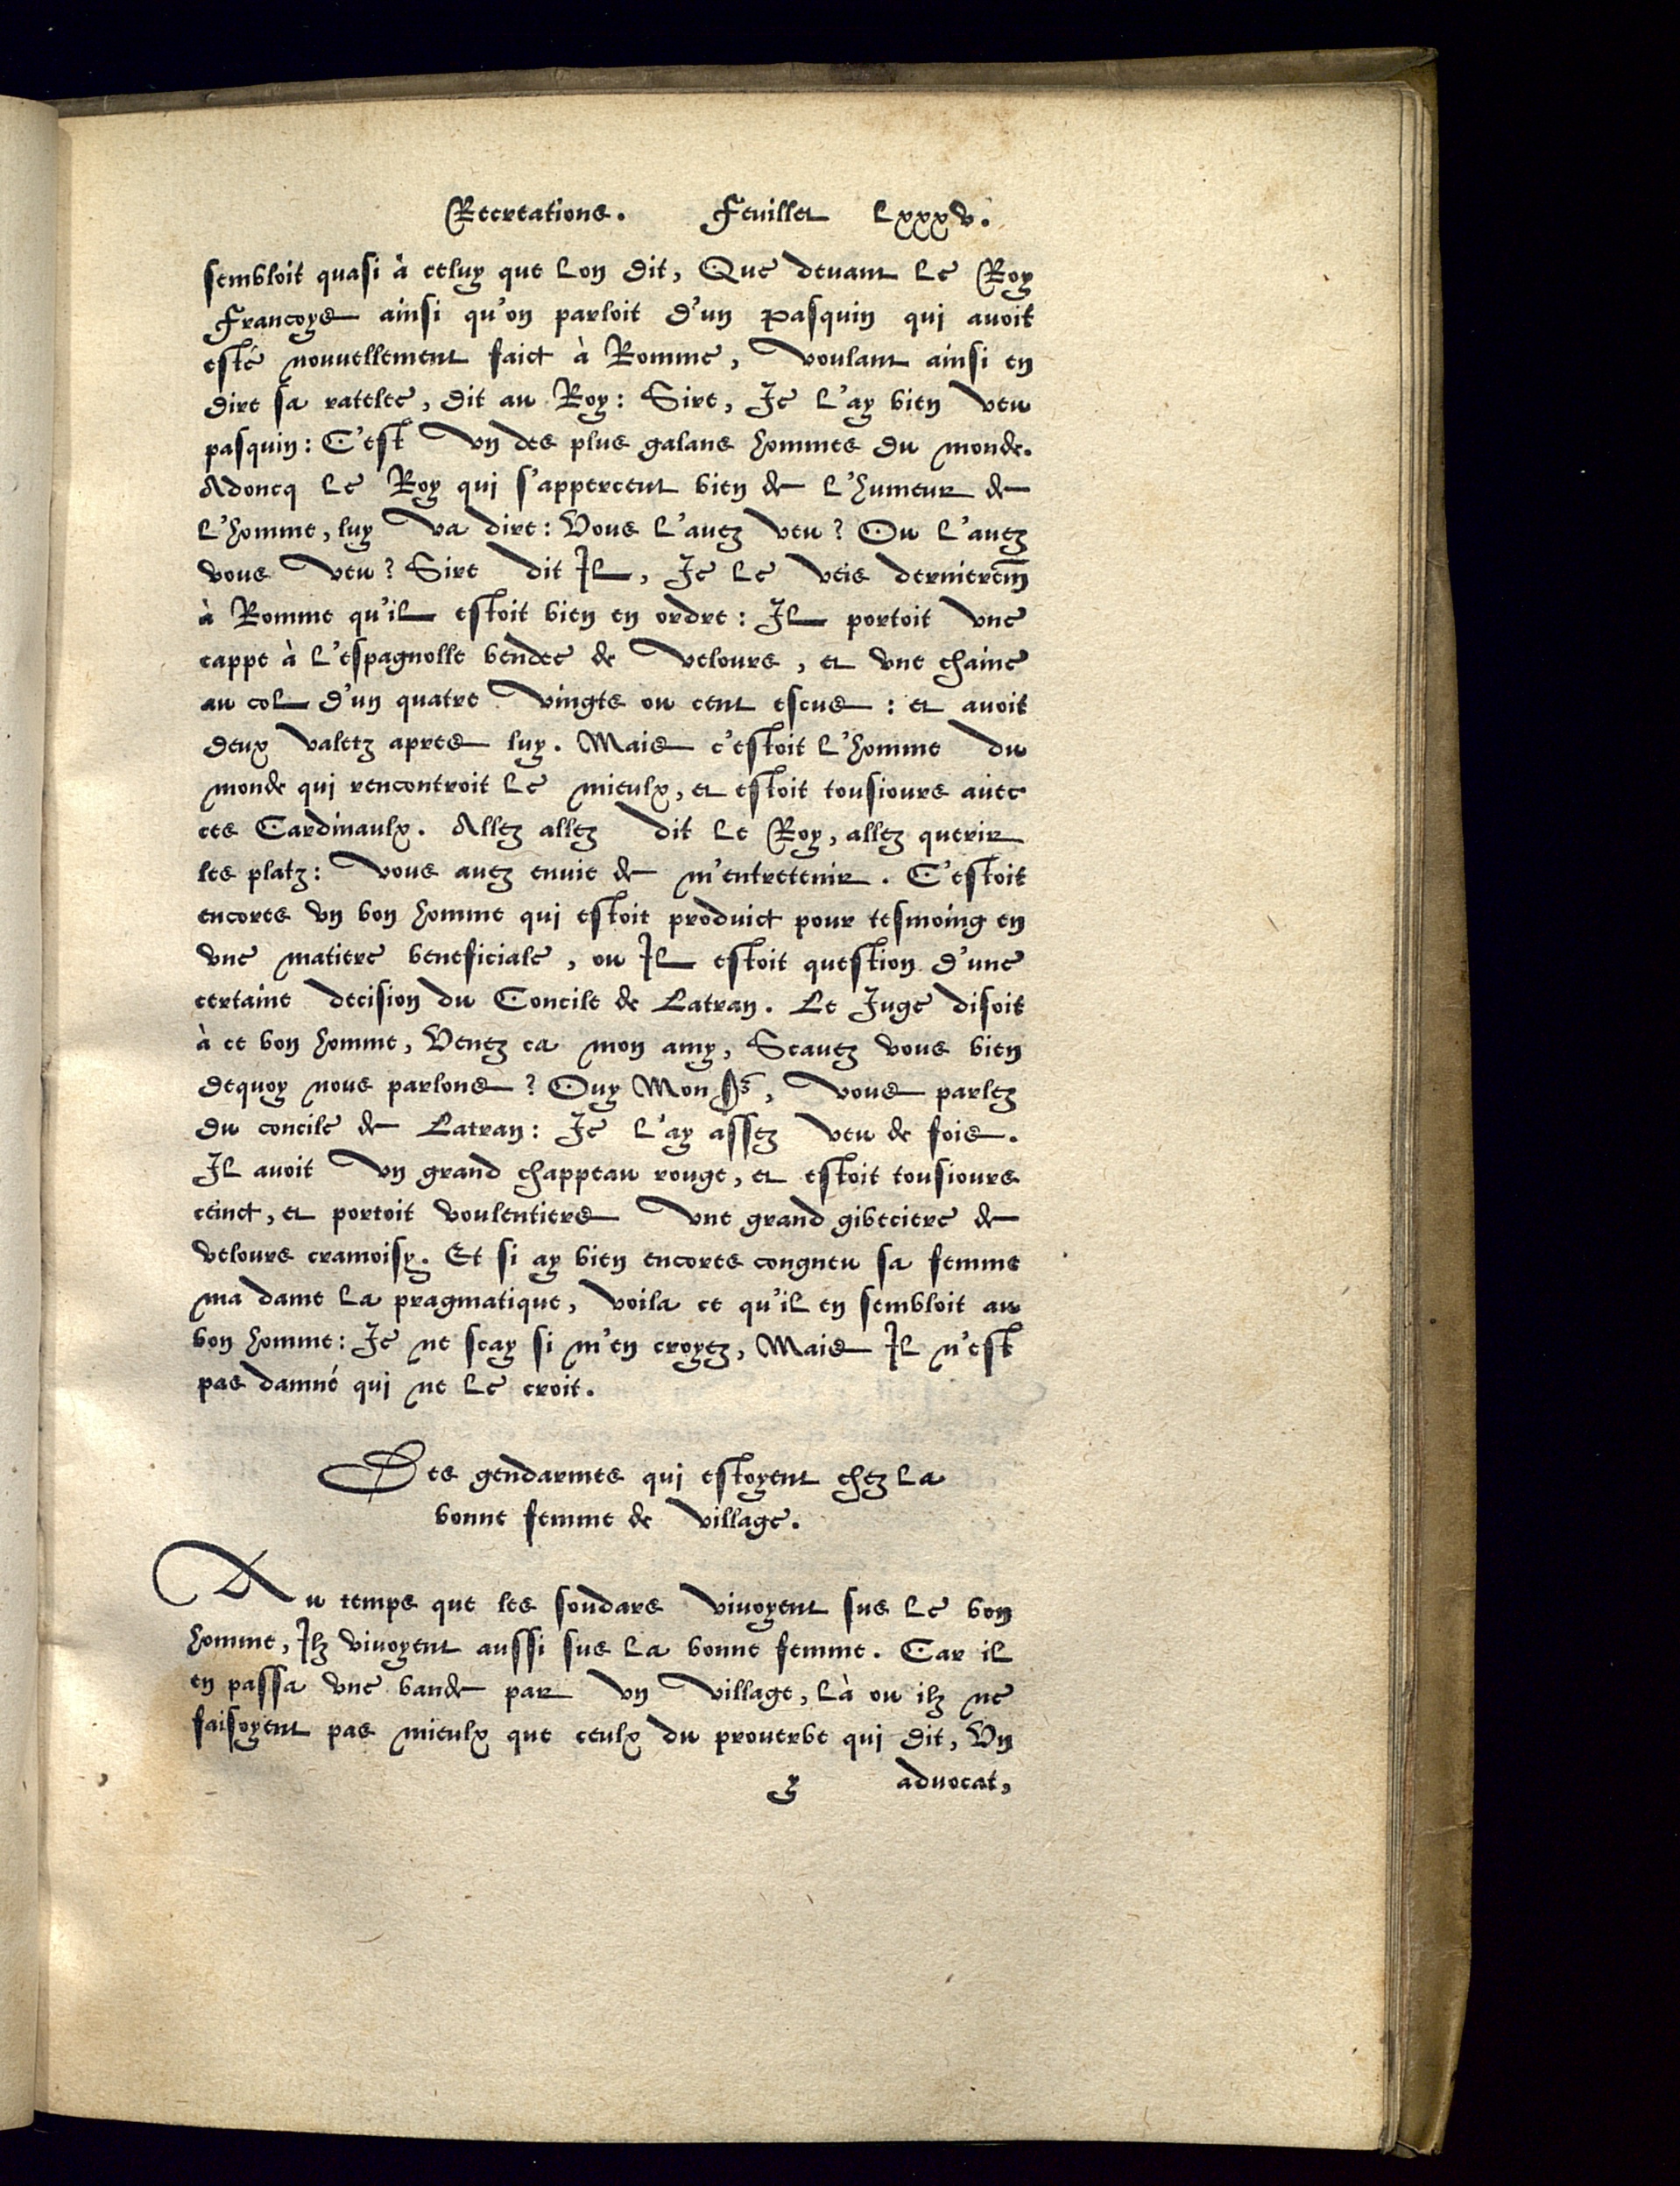 Recreations. Feuillet Lxxxv.
sembloit quasi à celuy que lon dit, Que deuant le Roy
Francoys ainsi qu'on parloit d'un pasquin qui auoit
esté nouuellement faict à Romme, voulant ainsi en
dire sa ratelee, dit au Roy: Sire, Je l'ay bien veu
pasquin: C'est vn des plus galans hommes du monde.
Adoncq le Roy qui s'apperceut bien de l'humeur de
l'homme, luy va dire: Vous l'auez veu? Ou l'auez
vous veu? Sire dit Il, Je le veis dernierem̄
à Romme qu'il estoit bien en ordre: Il portoit vne
cappe à l'espagnolle bendee de velours, et vne chaine
au col d'un quatre vingts ou cent escus: et auoit
deux valetz apres luy. Mais c'estoit l'homme du
monde qui rencontroit le mieulx, et estoit tousiours auec
ces Cardinaulx. Allez allez dit le Roy, allez querir
les platz: vous auez enuie de m'entretenir. C'estoit
encores vn bon homme qui estoit produict pour tesmoing en
vne matiere beneficiale, ou Il estoit question d'une
certaine decision du Concile de Latran. Le Juge disoit
à ce bon homme, Venez ca mon amy, Scauez vous bien
dequoy nous parlons? Ouy Mon sr, vous parlez
du concile de Latran: Je l'ay assez veu de fois.
Il auoit vn grand chappeau rouge, et estoit tousiours
ceinct, et portoit voulentiers vne grand gibeciere de
velours cramoisy. Et si ay bien encores congneu sa femme
ma dame la pragmatique, voila ce qu'il en sembloit au
bon homme: Je ne scay si m'en croyez, Mais Il n'est
pas damné qui ne le croit.
Des gendarmes qui estoyent chez la
bonne femme de village.
Au temps que les soudars viuoyent sus le bon
homme, Ilz viuoyent aussi sus la bonne femme. Car il
en passa vne bande par vn village, là ou ilz ne
faisoyent pas mieulx que ceulx du prouerbe qui dit, Vn
y aduocat,